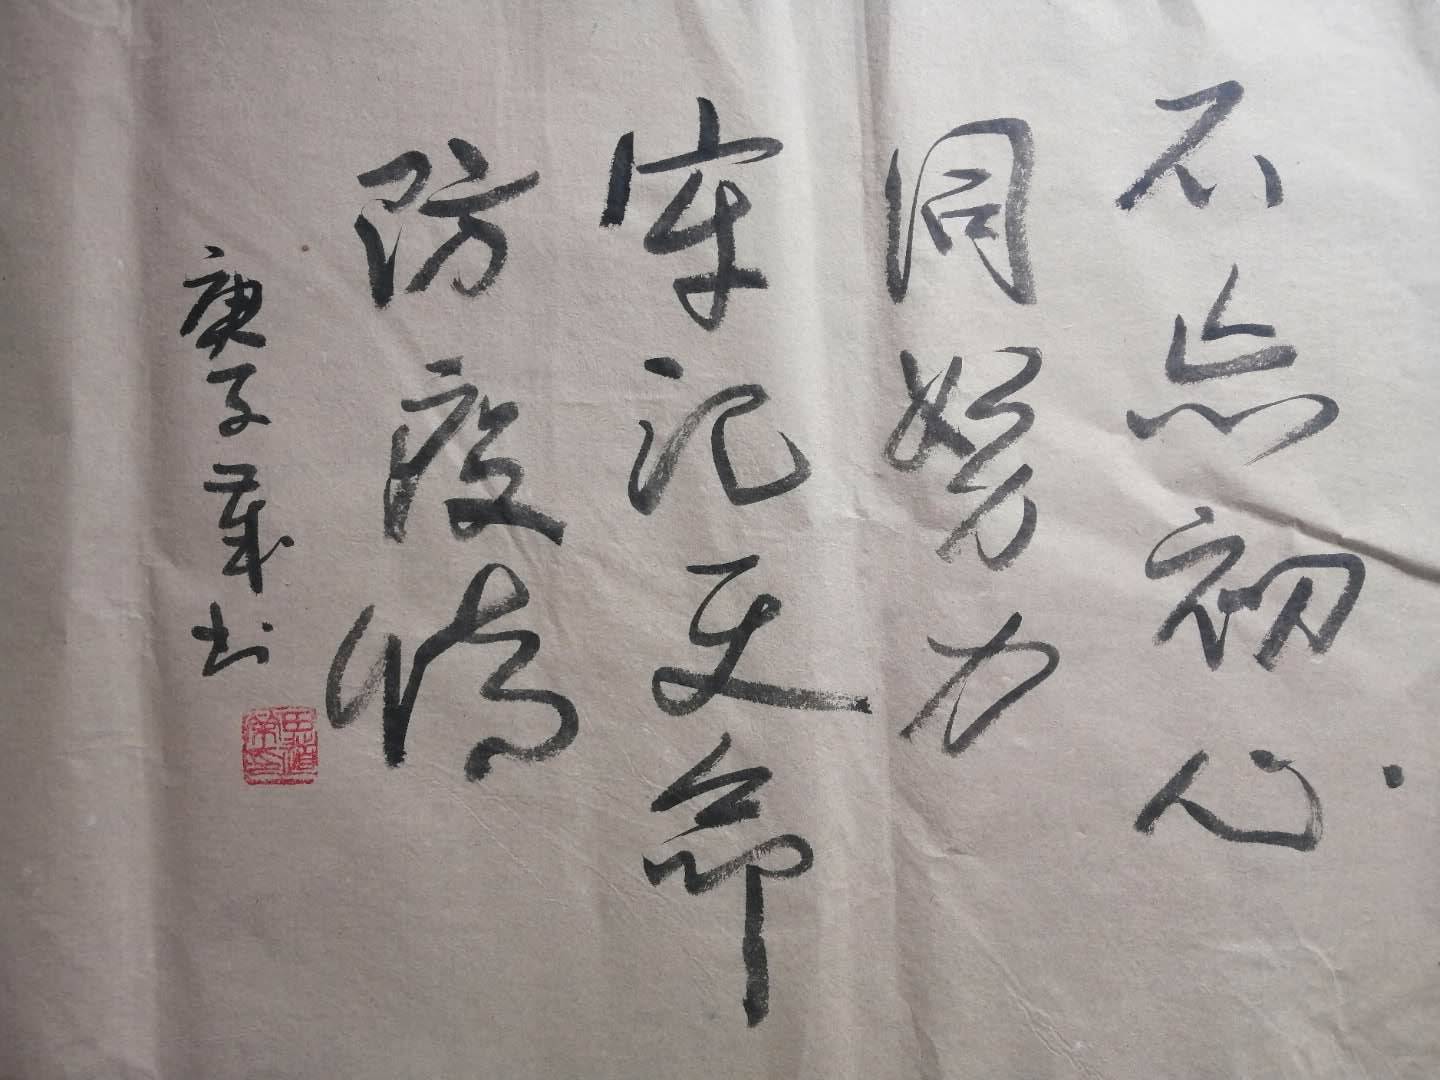 不忘初心
同努力
牢记使命
防疫情
庚子书